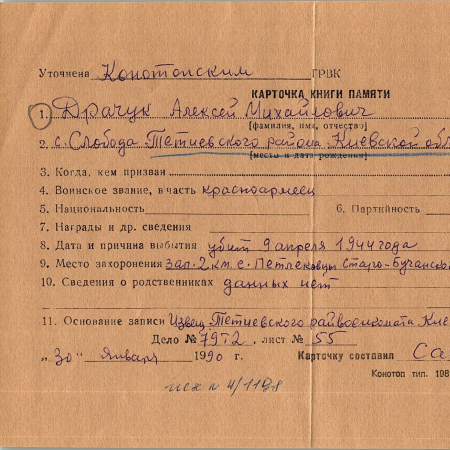 Уточнена Конотопским ГРВК
КАРТОЧКА КНИГИ ПАМЯТИ
1. Драчук Алексей Михайлович
(фамилия, имя, отчество)
2. с. Слобода Тетиевского района Киевской обл
(место и дата рождения)
3. Когда, кем призван
4. Воинское звание, в/часть красноармеец
5. Национальность 6. Партийность
7. Награды и др. сведения
8. Дата и причина выбытия убит 9 апреля 1944 года
9. Место захоронения зап. 2 км. с. Петлековцы Старо-Бучанско
10. Сведения о родственниках данных нет
11. Основание записи Извещ. Тетиевского райвоенкомата Кие
Дело № 79т2, лист № 55
„30" января 1990 г. Карточку составил Са
Конотоп тип. 198
исх № 4/1198